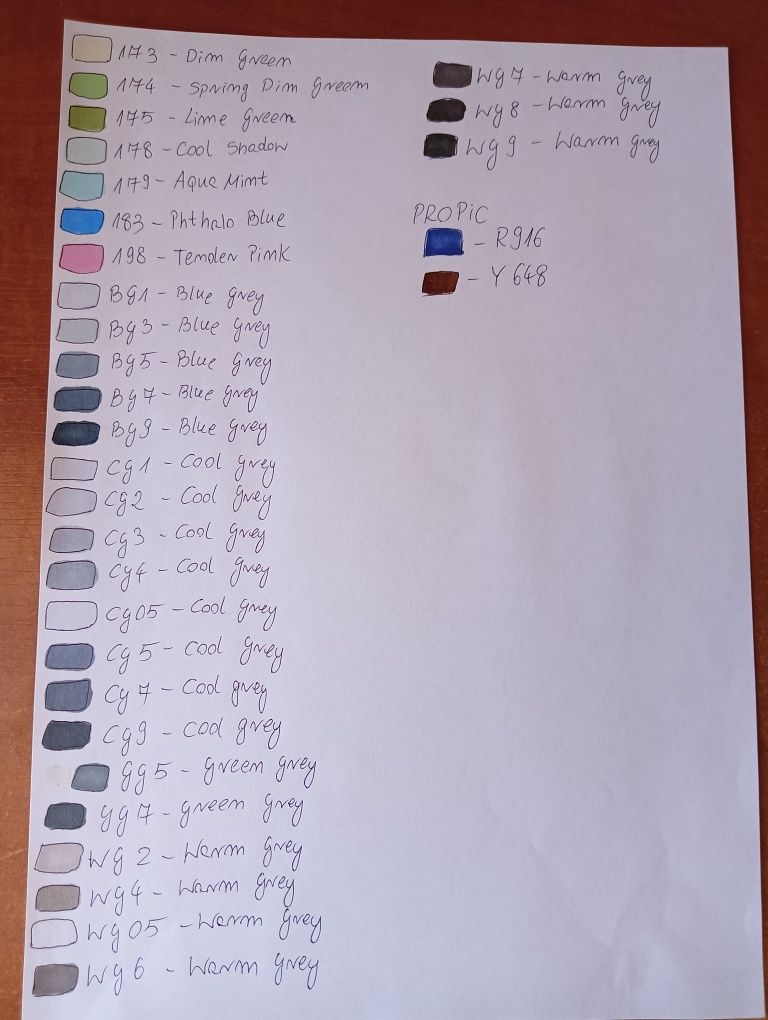 173 - Dim Green
174 - Spring Dim Green
175 - Lime Green
178 - Cool Shadow
179 - Aqua Mint
183 - Phthalo Blue
198 - Temden Pink
Bg1 - Blue grey
Bg3 - Blue grey
Bg5 - Blue grey
Bg7 - Blue grey
Bg9 - Blue grey
Cg1 - Cool grey
Cg2 - Cool grey
Cg3 - Cool grey
Cg4 - Cool grey
Cg05 - Cool grey
Cg5 - Cool grey
Cg7 - Cool grey
Cg9 - Cool grey
gg5 - green grey
gg7 - green grey
Wg2 - Warm grey
Wg4 - Warm grey
Wg05 - Warm grey
Wg6 - Warm grey
Wg7 - Warm grey
Wg8 - Warm grey
Wg9 - Warm grey
PROPIC
- R916
- Y648